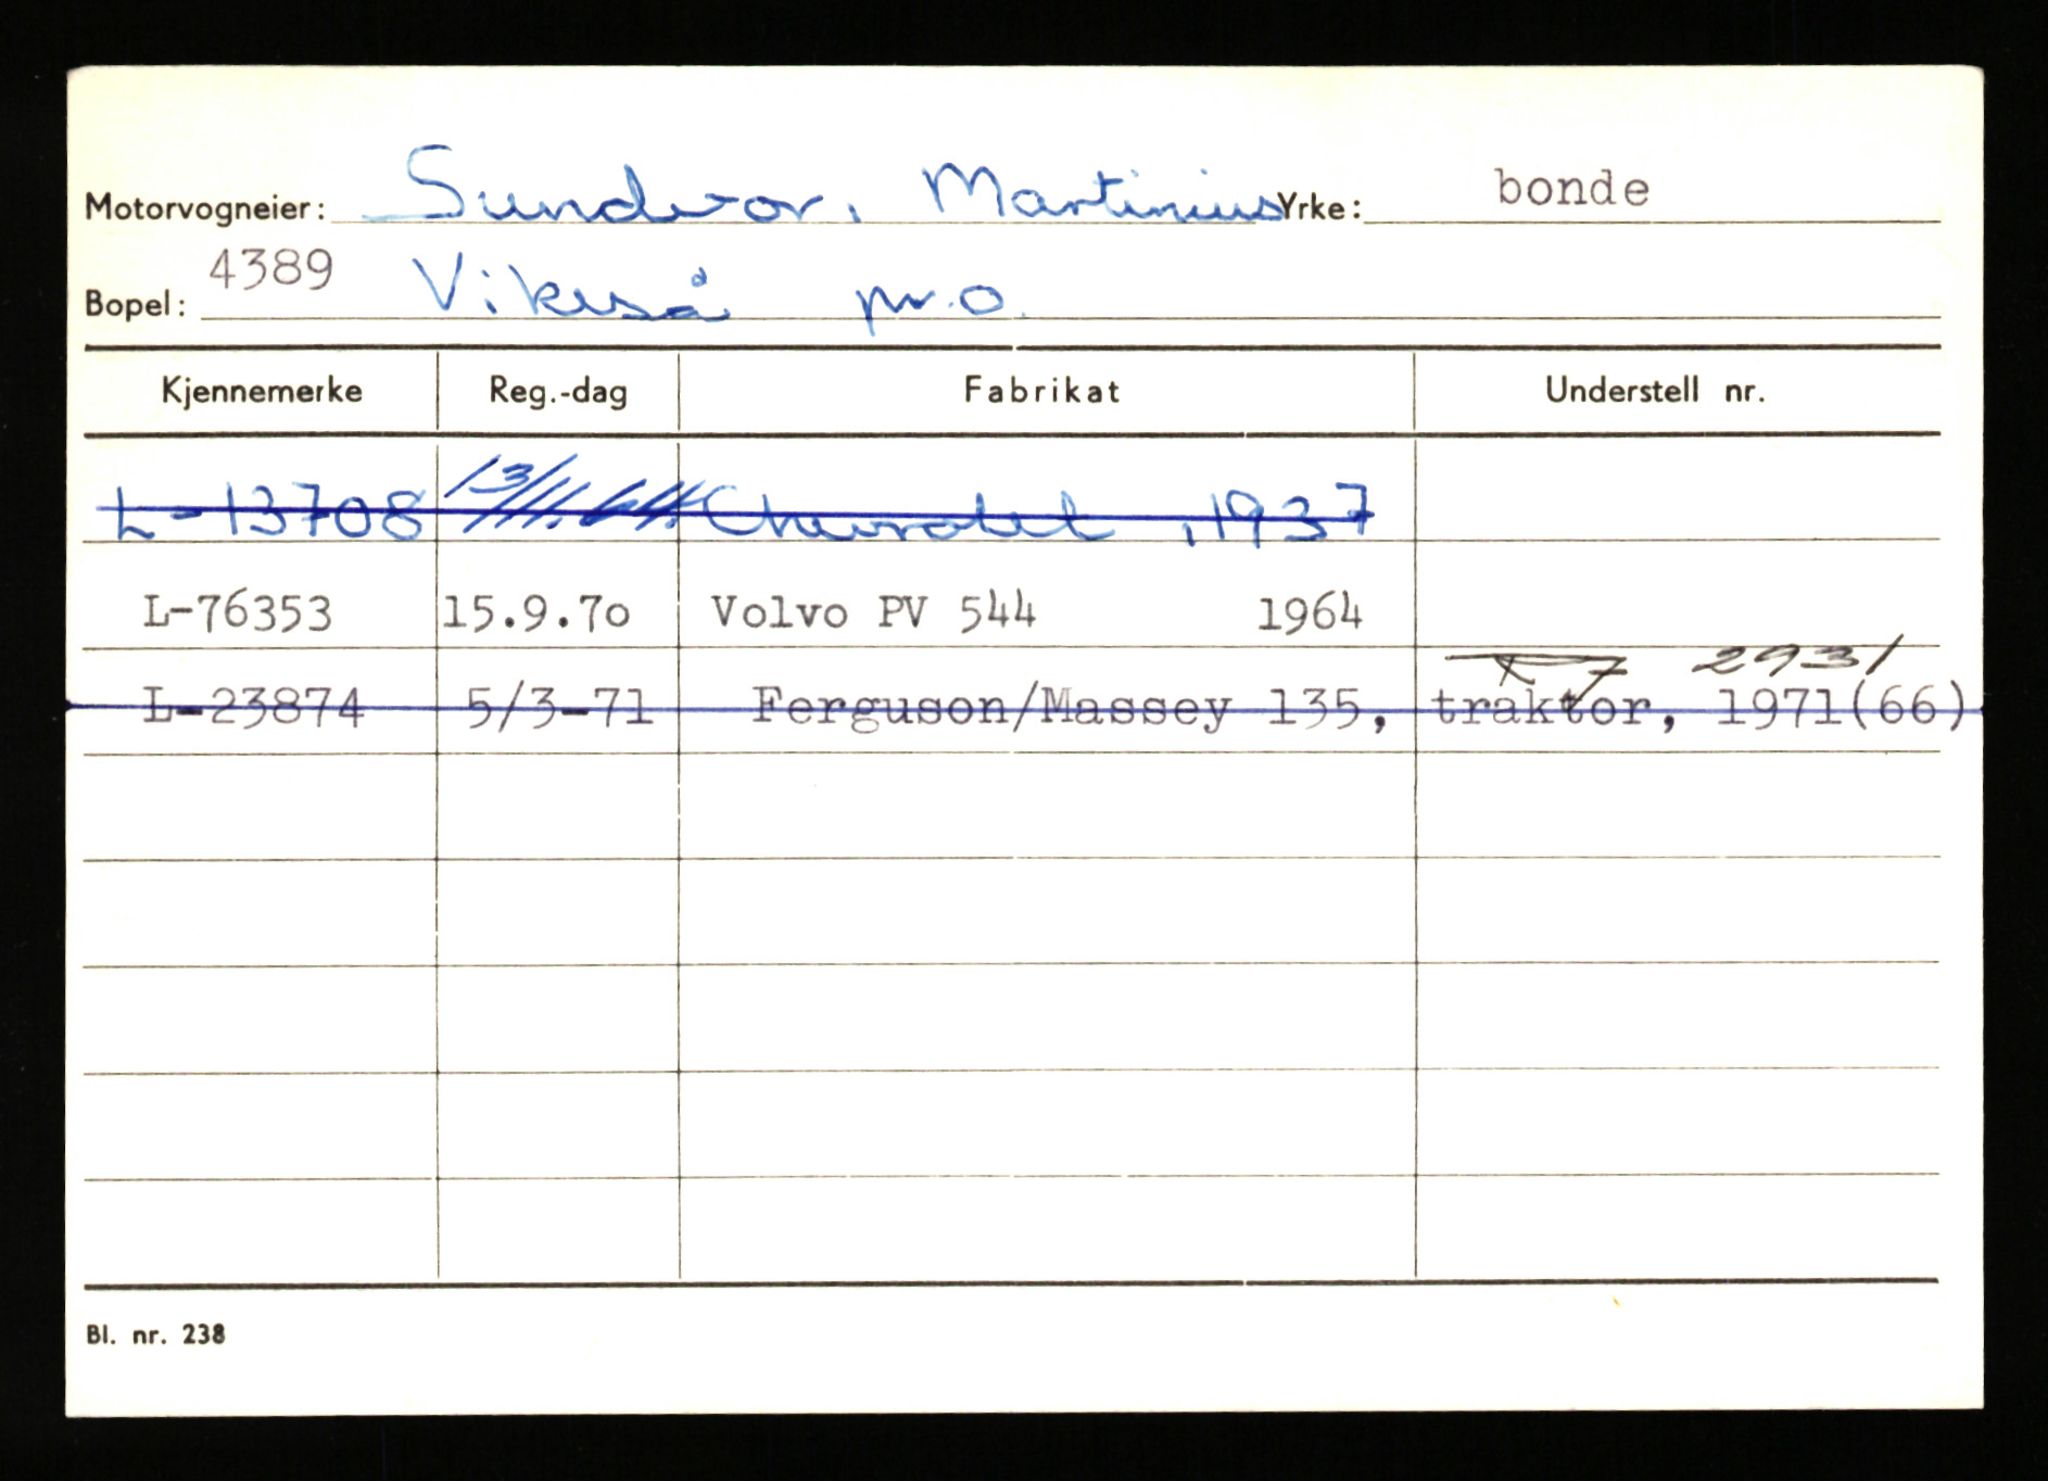 Motorvogneier: Sundvor, Martinius Yrke: bonde
Bopel: 4389 Vikeså pr.o.
Kjennemerke Reg.-dag Fabrikat Understell nr.
L-13708 13/11.64. Chevrolet, 1937
L-76353 15.9.70 Volvo PV 544 1964
2931
L-23874 5/3-71 Ferguson/Massey 135, traktor, 1971(66)
Bl. nr. 238